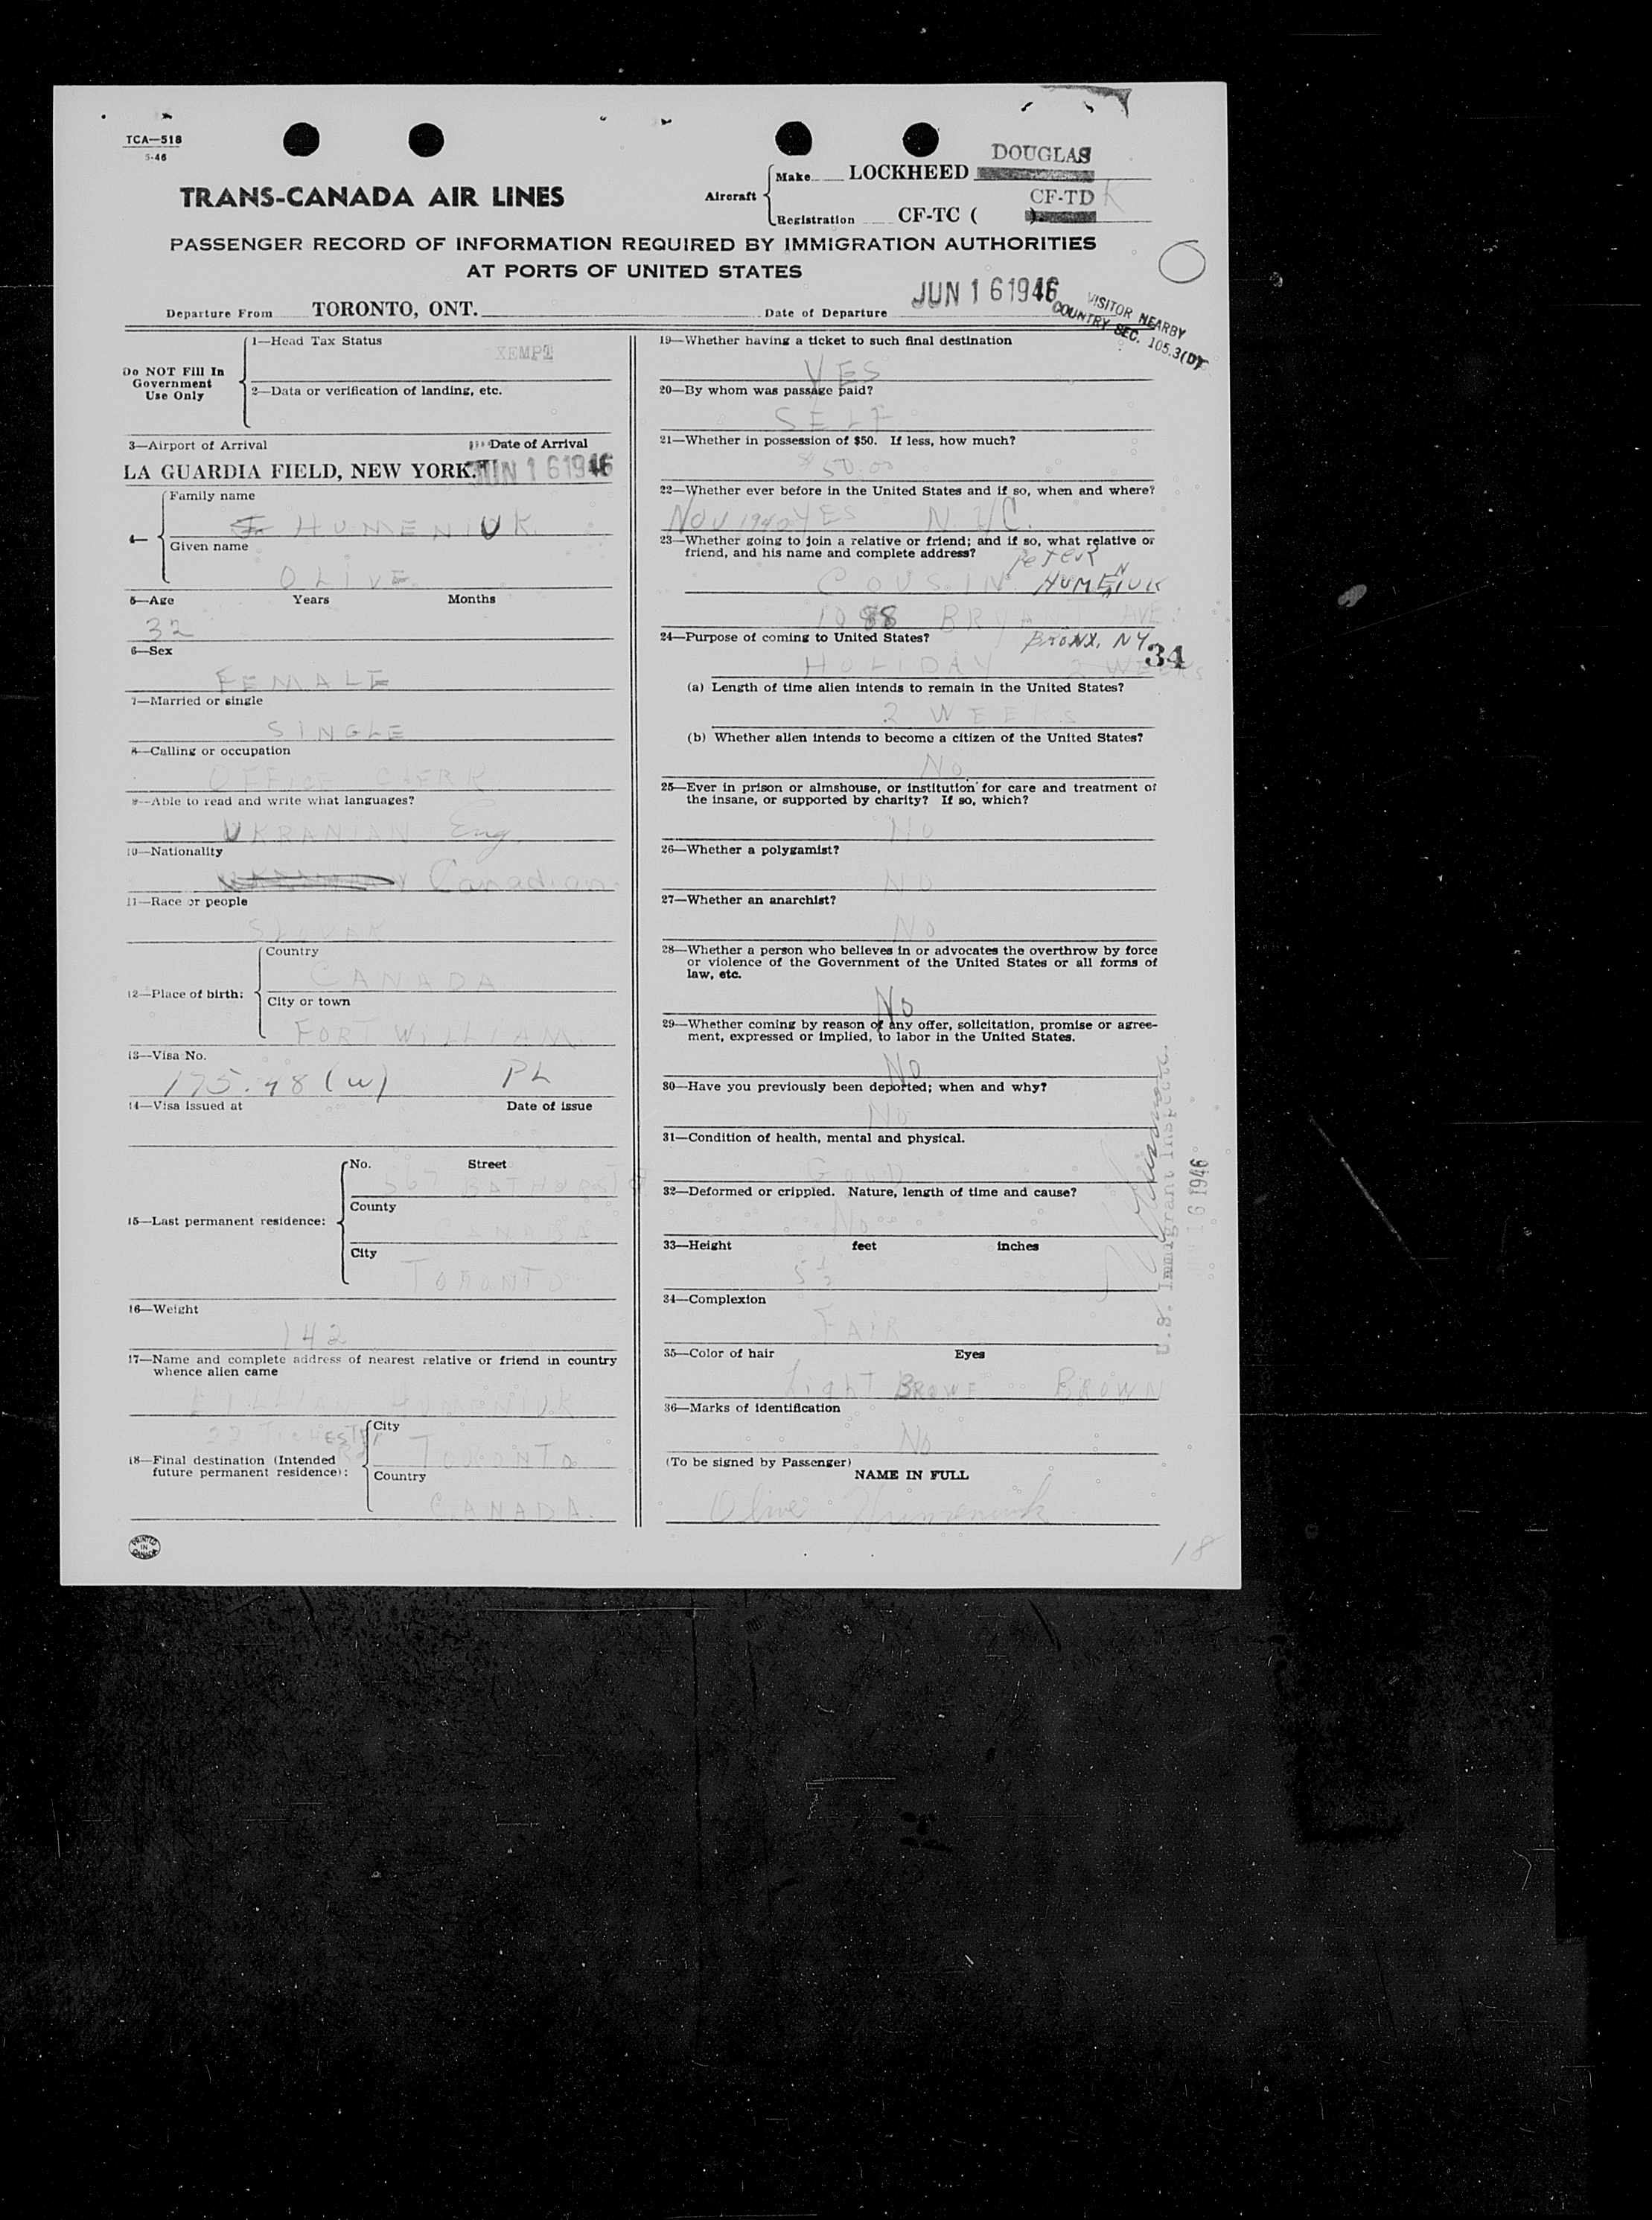 TCA—518
5-46
TRANS-CANADA AIR LINES
Aircraft
Make LOCKHEED DOUGLAS
Registration CF-TC ( ) CF-TD K
PASSENGER RECORD OF INFORMATION REQUIRED BY IMMIGRATION AUTHORITIES
AT PORTS OF UNITED STATES
Departure From TORONTO, ONT. Date of Departure JUN 16 1946
VISITOR NEARBY
COUNTRY SEC. 105.3(D)
Do NOT Fill In
Government
Use Only
1—Head Tax Status
XEMPT
2—Data or verification of landing, etc.
3—Airport of Arrival Date of Arrival
LA GUARDIA FIELD, NEW YORK. JUN 16 1946
4—
Family name
HUMENIUK
Given name
OLIVE
5—Age Years Months
32
6—Sex
FEMALE
7—Married or single
SINGLE
8—Calling or occupation
OFFICE CLERK
9—Able to read and write what languages?
UKRANIAN Eng.
10—Nationality
Canadian
11—Race or people
12—Place of birth:
Country
CANADA
City or town
FORT WILLIAM
13—Visa No.
175.98 (w) PL
14—Visa issued at Date of issue
15—Last permanent residence:
No. Street
567 BATHURST
County
CANADA
City
TORONTO
16—Weight
142
17—Name and complete address of nearest relative or friend in country
whence alien came
HUMENIUK
22
18—Final destination (Intended
future permanent residence):
City
TORONTO
Country
CANADA.
PRINTED
IN
CANADA
19—Whether having a ticket to such final destination
YES
20—By whom was passage paid?
SELF
21—Whether in possession of $50. If less, how much?
$50.00
22—Whether ever before in the United States and if so, when and where?
NOV 1940 YES N.Y.C.
23—Whether going to join a relative or friend; and if so, what relative or
friend, and his name and complete address?
PETER
COUSIN HUMENIUK
1088 BRYANT AVE.
24—Purpose of coming to United States? BRONX, NY
34
HOLIDAY 2 WEEKS
(a) Length of time alien intends to remain in the United States?
2 WEEKS
(b) Whether alien intends to become a citizen of the United States?
No
25—Ever in prison or almshouse, or institution for care and treatment of
the insane, or supported by charity? If so, which?
No
26—Whether a polygamist?
NO
27—Whether an anarchist?
No
28—Whether a person who believes in or advocates the overthrow by force
or violence of the Government of the United States or all forms of
law, etc.
No
29—Whether coming by reason of any offer, solicitation, promise or agree-
ment, expressed or implied, to labor in the United States.
No
30—Have you previously been deported; when and why?
No
31—Condition of health, mental and physical.
GOOD
32—Deformed or crippled. Nature, length of time and cause?
No
33—Height feet inches
5 1/2
34—Complexion
FAIR
35—Color of hair Eyes
Light BROWE BROWN
36—Marks of identification
No
(To be signed by Passenger)
NAME IN FULL
Olive Humeniuk
U.S. Immigrant Inspector.
16 1946
18